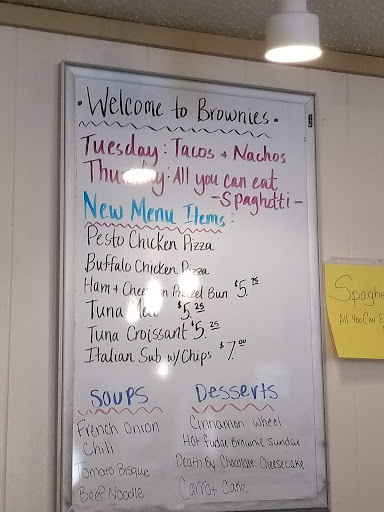 • Welcome to Brownies •
Tuesday: Tacos + Nachos
Thursday: All you can eat
- Spaghetti -
New Menu Items:
Pesto Chicken Pizza
Buffalo Chicken Pizza
Ham + Cheese on Pretzel Bun $5.75
Tuna Melt $5.25
Tuna Croissant $5.25
Italian Sub w/ Chips $7.00
Soups
French Onion
Chili
Tomato Bisque
Beef Noodle
Desserts
Cinnamon Wheel
Hot Fudge Brownie Sundae
Death By Chocolate Cheesecake
Carrot Cake
All You Can